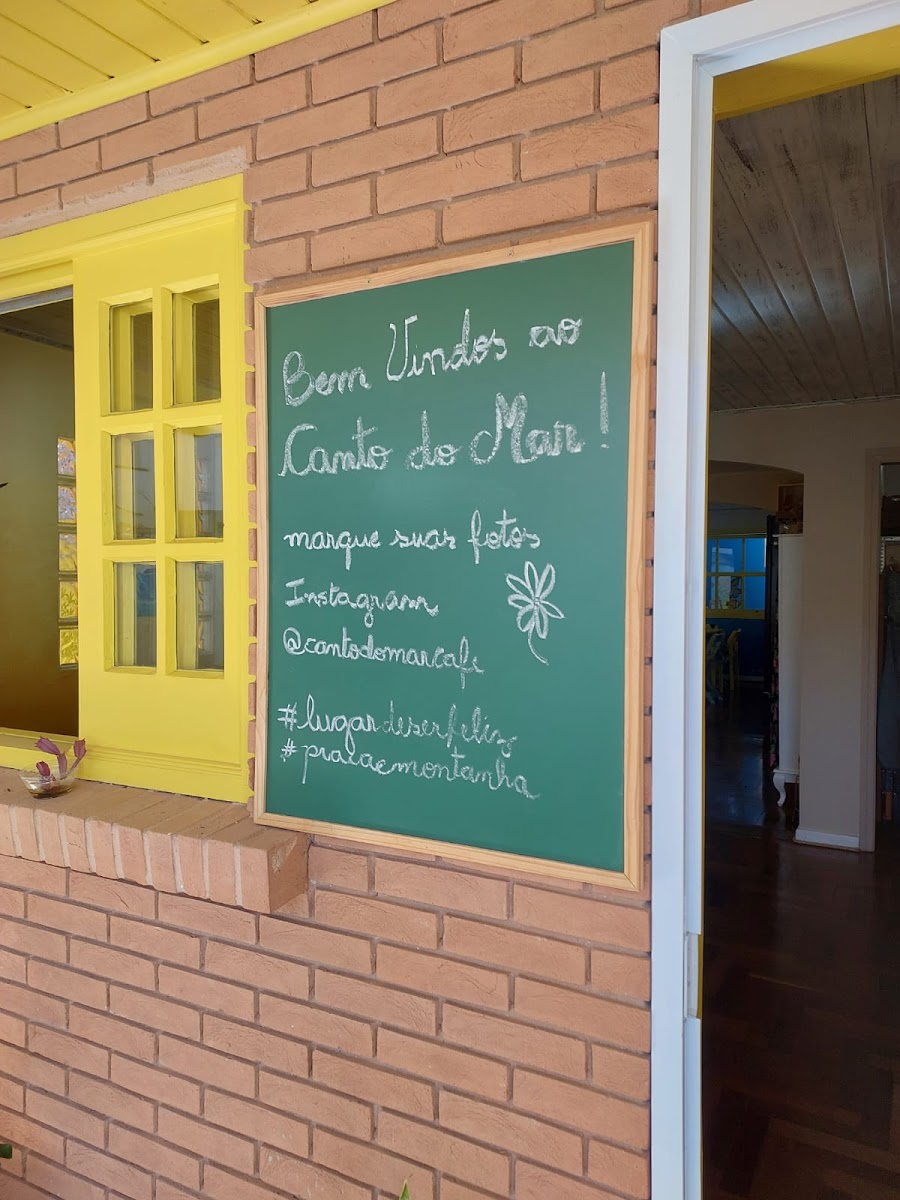 Bem Vindos ao
Canto do Mar!
marque suas fotos
Instagram
@cantodomarcafe
#lugardeserfeliz
#praiaemontanha